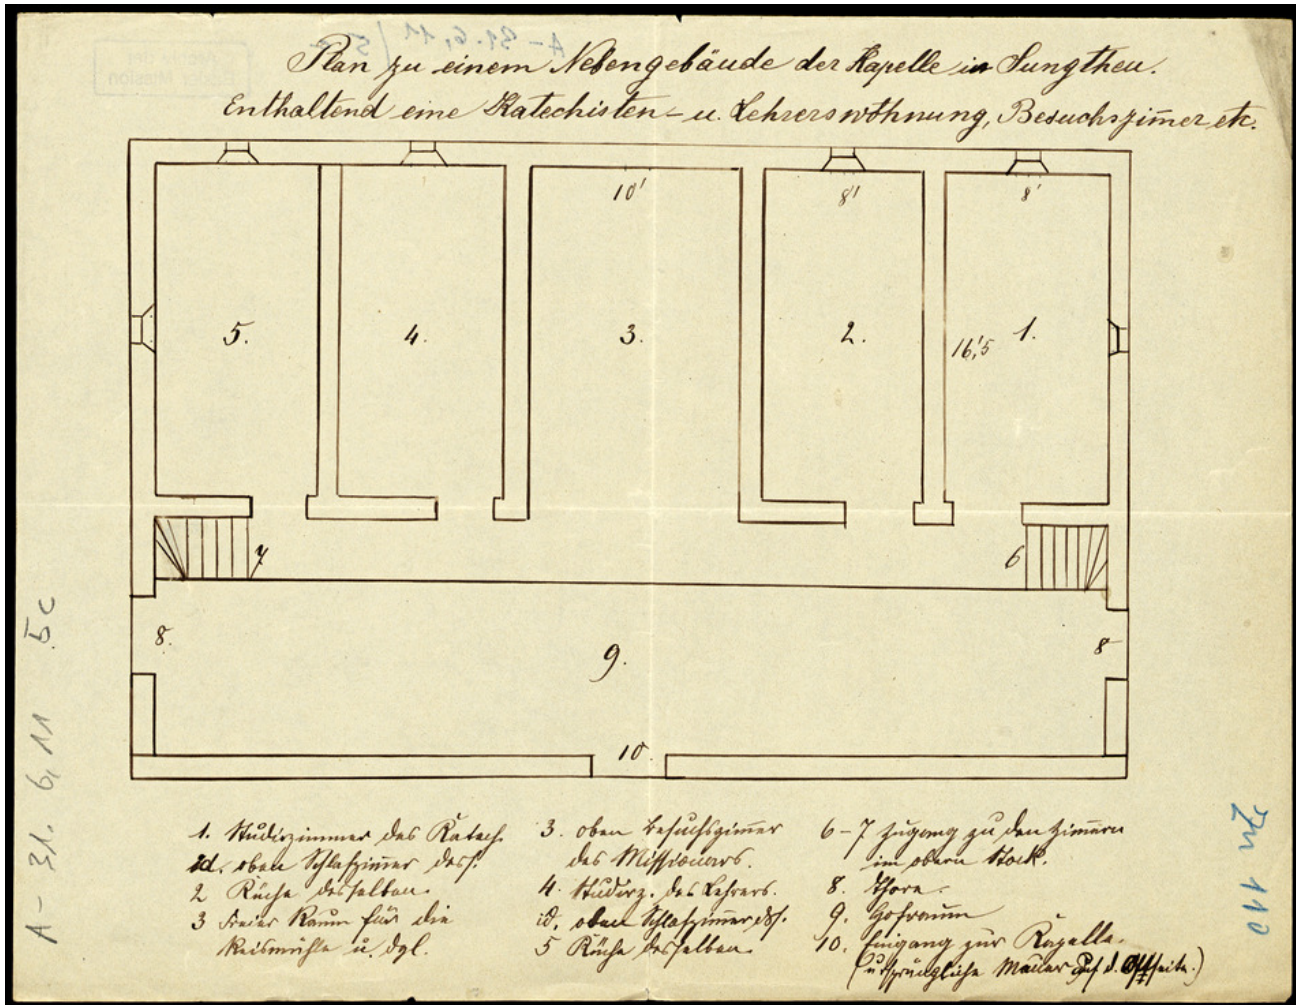 A-31.6,11 / 5c
Archiv der
Basler Mission
Plan zu einem Nebengebäude der Kapelle in Lungtheu.
Enthaltend eine Katechisten- u. Lehrerswohnung, Besuchszimmer etc.
10'
8'
8'
5.
4.
3.
2.
16,'5
1.
7
6
8.
9.
8
10.
A-31.6,11 5c
Zu 110
1. Studirzimmer des Katech.
id. oben Schlafzimmer dess.
2 Küche desselben.
3 Freier Raum für die
Reismühle u. dgl.
3. oben Besuchszimmer
des Missionars.
4. Studirz. des Lehrers.
id. oben Schlafzimmer dss.
5 Küche desselben.
6-7 Zugang zu den Zimmern
im obern Stock.
8. Thore.
9. Hofraum
10. Eingang zur Kapelle.
(ursprüngliche Mauer auf d. Ostseite.)